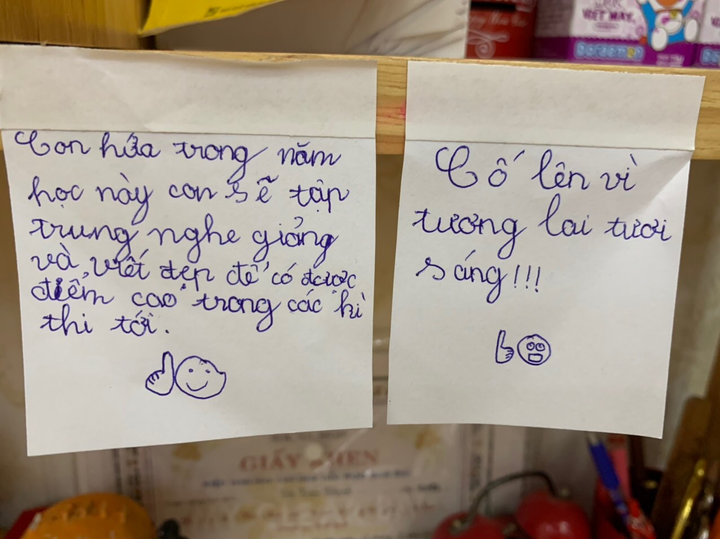 Con hứa trong năm
học này con sẽ tập
trung nghe giảng
và viết đẹp để có được
điểm cao trong các kì
thi tới.
Cố lên vì
tương lai tươi
sáng!!!
VIET MAY
Doraemon
GIẤY KHEN